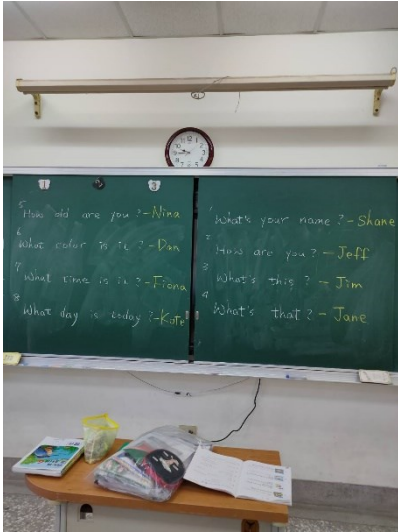 1 3
5 How old are you? - Nina
6 What color is it? - Dan
7 What time is it? - Fiona
8 What day is today? - Kate
1 What's your name? - Shane
2 How are you? - Jeff
3 What's this? - Jim
4 What's that? - Jane